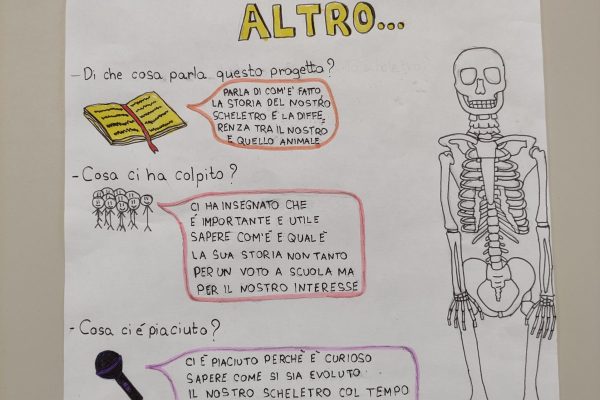 ALTRO...
- Di che cosa parla questo progetto?
PARLA DI COM'E' FATTO
LA STORIA DEL NOSTRO
SCHELETRO E LA DIFFE,
RENZA TRA IL NOSTRO
E QUELLO ANIMALE
- Cosa ci ha colpito?
CI HA INSEGNATO CHE
É IMPORTANTE E UTILE
SAPERE COM'É E QUAL É
LA SUA STORIA NON TANTO
PER UN VOTO A SCUOLA MA
PER IL NOSTRO INTERESSE
- Cosa ci é piaciuto?
CI É PIACIUTO PERCHÈ È CURIOSO
SAPERE COME SI SIA EVOLUTO
IL NOSTRO SCHELETRO COL TEMPO